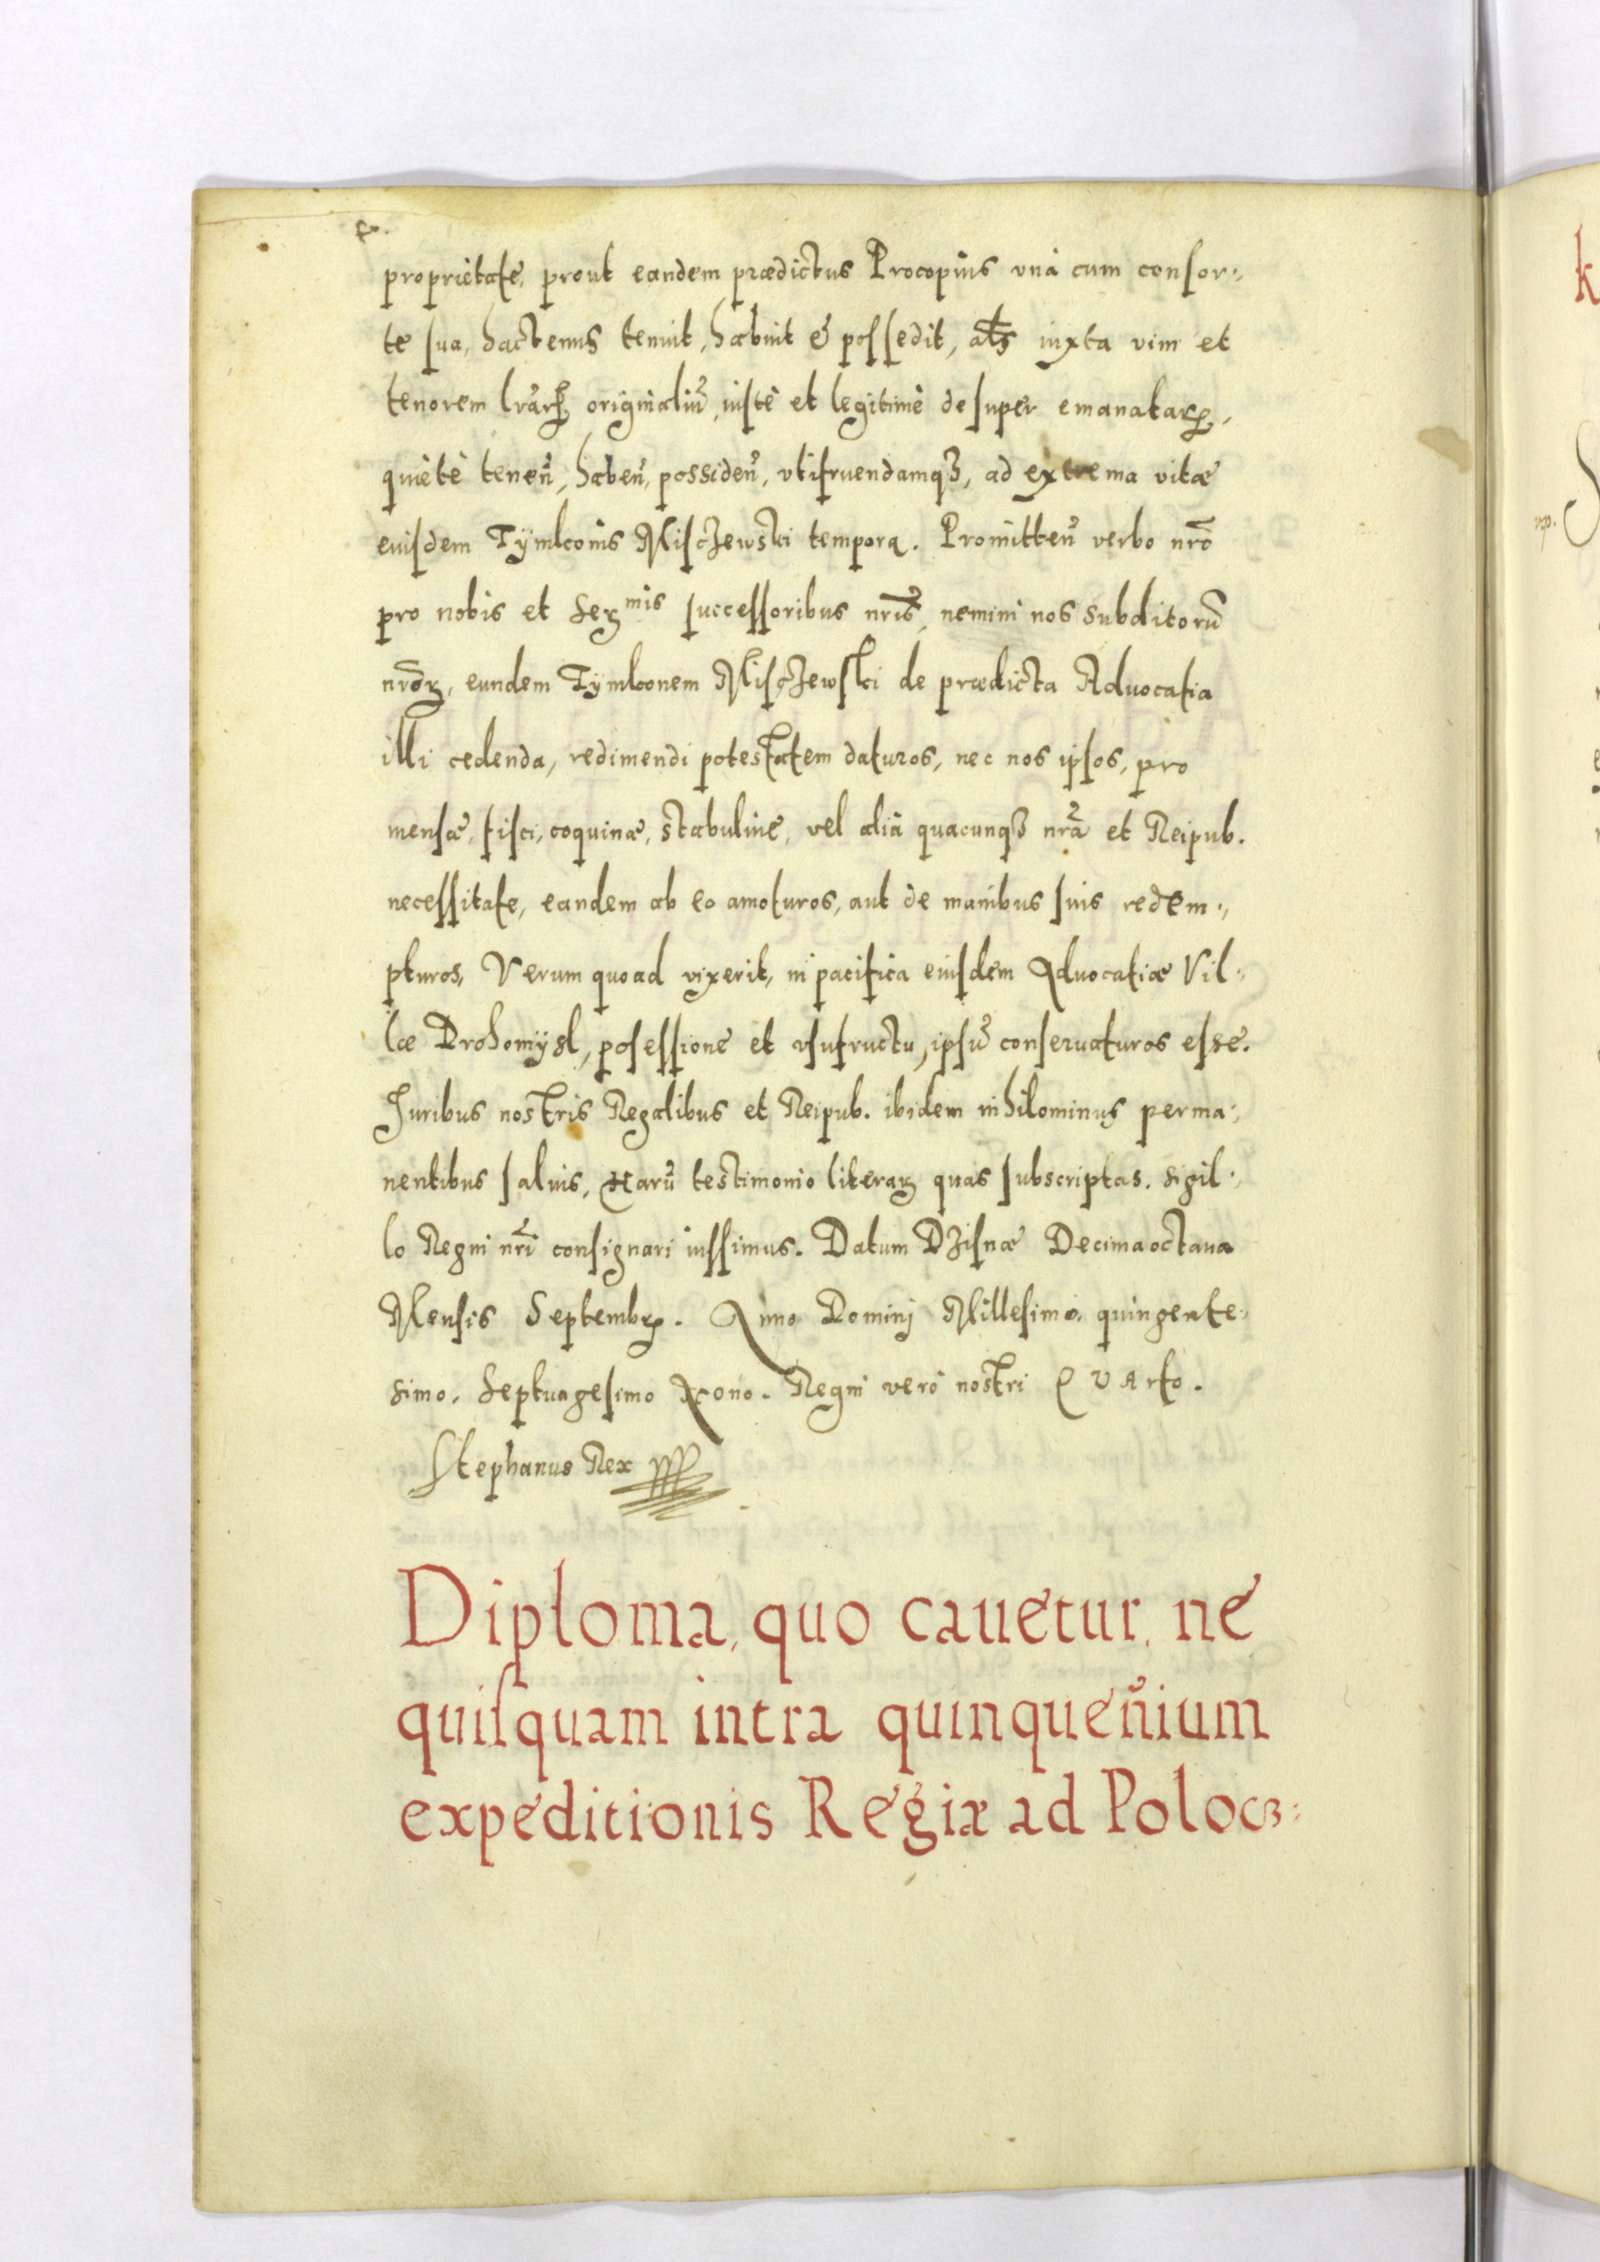 proprietate, prout eandem prædictus Procopius vnà cum consor-
te sua, hactenus tenuit, habuit & possedit, atq̃ iuxta vim et
tenorem lrãrꝝ originaliũ, iustè et legitimè desuper emanatarꝝ,
quietè teneñ, habeñ, possideñ, vtifruendamqȝ, ad extrema vitæ
eiusdem Tymkonis Misczewski tempora. Promitteñ verbo nrõ
pro nobis et Serᵐⁱˢ successoribus nrĩs, nemini nos subditorũ
nrõꝝ, eundem Tymkonem Misczewski de prædicta Aduocatia
illi cedenda, redimendi potestatem daturos, nec nos ipsos, pro
mensæ, fisci, coquinæ, stabulive, vel aliâ quacunqȝ nrã et Reipub.
necessitate, eandem ab eo amoturos, aut de manibus suis redem-
pturos, Verum quoad vixerit, in pacifica eiusdem Aduocatiæ Vil-
læ Drohomÿsl, possessione et vsufructu, ipsũ conseruaturos esse.
Juribus nostris Regalibus et Reipub. ibidem nihilominus perma-
nentibus saluis, Harũ testimonio literaꝝ quas subscriptas. sigil-
lo Regni nrĩ consignari iussimus. Datum Dzisnæ Decimaoctaua
Mensis Septembꝝ. Anno Dominj Millesimo, quingente-
simo. Septuagesimo Nono. Regni verò nostri QVArto.
Stephanus Rex
Diploma, quo cauetur, ne
quisquam intra quinqueñium
expeditionis Regiæ ad Polocz-